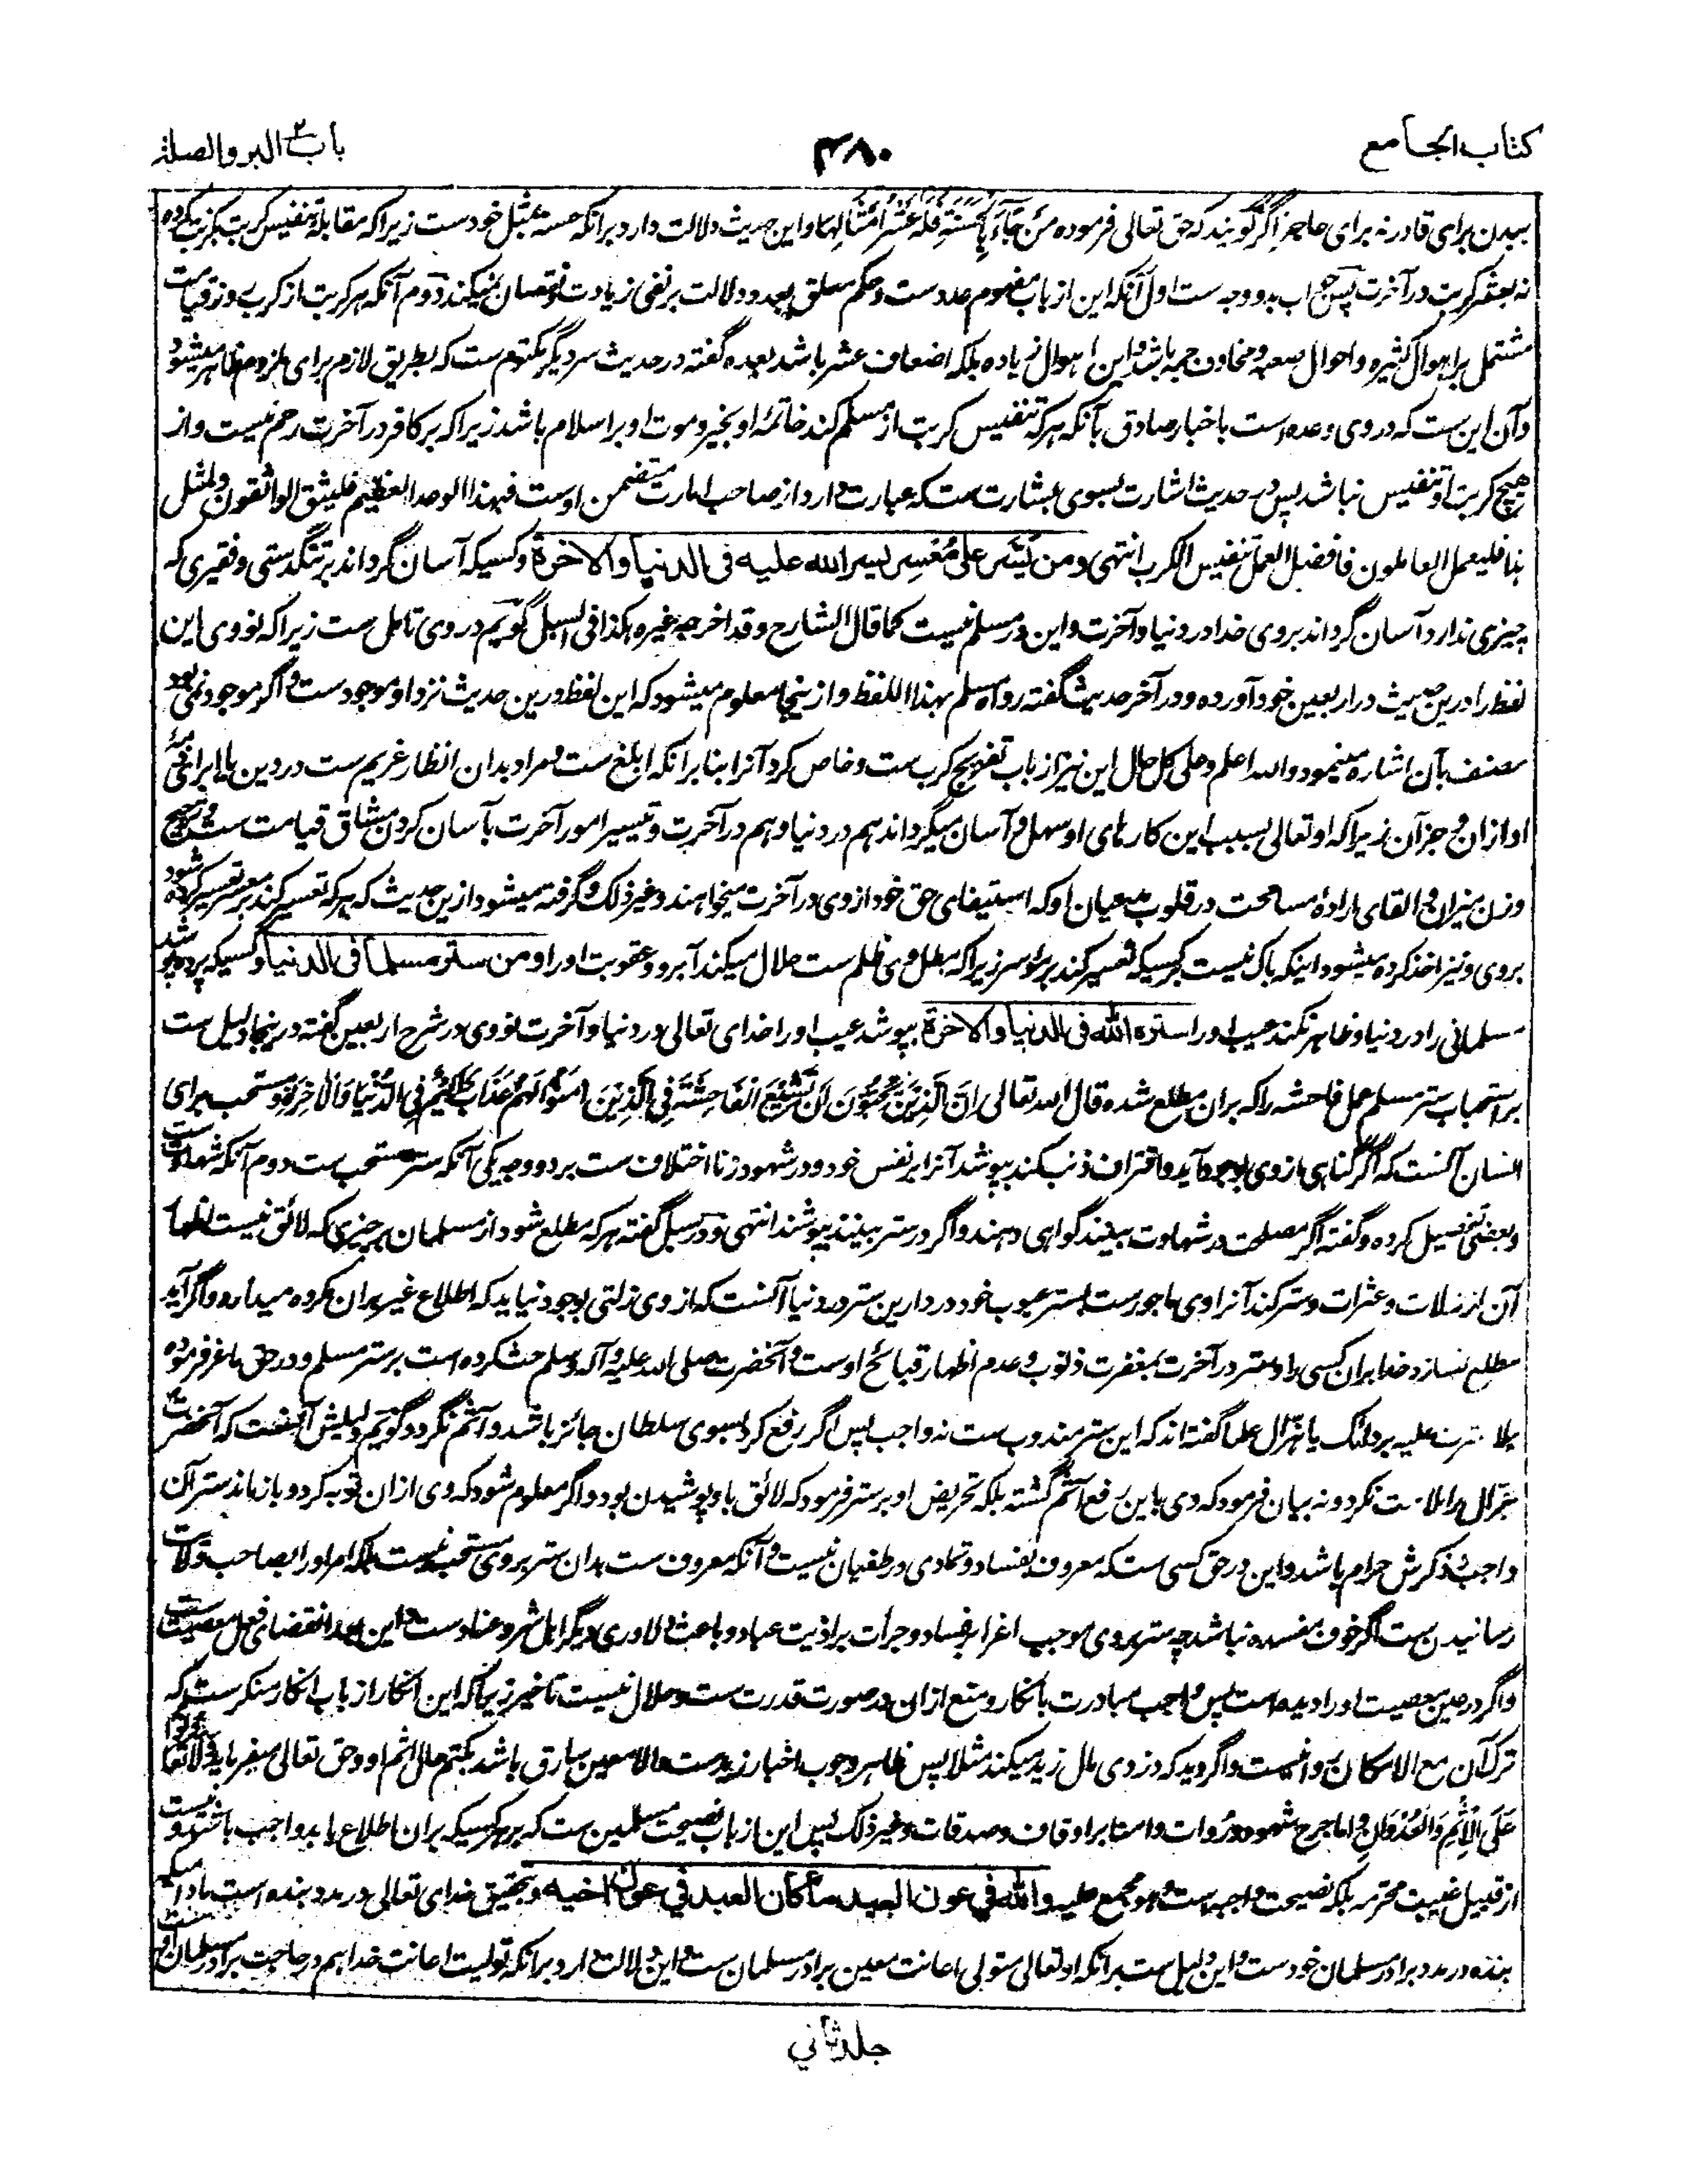 کتاب الجامع
۴۸۰
باب البر والصلة
ببدن برای قادر نه برای عاجز اگر گویند که حق تعالی فرموده من جاء بالحسنة فله عشر امثالها و این حدیث دلالت دارد برانکه حسنه بمثل خودست زیراکه مقابلۀ تنفیس کربت بکربت کرده
نه بعشر کربت در آخرت پس جواب بدو وجه ست اول آنکه این از باب مفهوم عددست و حکم معلق بعدد دلالت بر نفی زیادت و نقصان نمیکند دوم آنکه هر کربت از کرب روز قیامت
مشتمل بر اهوال کثیره و احوال صعبه و مخاوف جمه باشد و این اهوال زیاده بلکه اضعاف عشر باشد بعده گفته در حدیث سر دیگر مکتوم ست که بطریق لازم برای ملزوم ظاهر میشود
و آن این ست که در وی وعده است باخبار صادق بآنکه هر که تنفیس کربت از مسلم کند خاتمۀ او بخیر و موت او بر اسلام باشد زیراکه بر کافر در آخرت رحم نیست و از
هیچ کربت او تنفیس نباشد پس در حدیث اشارت بسوی بشارت ست که عبارت وارد از صاحب امارت متضمن اوست فبهذا الوعد العظیم فلیثق الواثقون و لمثل
هذا فلیعمل العاملون فافضل العمل تنفیس الکرب انتهی و من یسر علی معسر یسر الله علیه فی الدنیا والاخرة و کسیکه آسان گرداند بر تنگدستی و فقیری که
چیزی ندارد آسان گرداند بر وی خدا در دنیا و آخرت و این در مسلم نیست کما قال الشارح و قد اخرجه غیره هکذا فی السبل گویم در وی تامل ست زیراکه نووی این
لفظ را درین حدیث در اربعین خود آورده و در آخر حدیث گفته رواه مسلم بهذا اللفظ و ازینجا معلوم میشود که این لفظ درین حدیث نزد او موجود ست و اگر موجود نمی بود
مصنف بآن اشاره مینمود والله اعلم و علی کل حال این نیز از باب تفریج کرب ست و خاص کرد آنرا بنا برانکه ابلغ ست و مراد بدان انظار غریم ست در دین یا ابرای ذمۀ
او ازان و جز آن زیراکه او تعالی بسبب این کارهای او سهل و آسان میگرداند هم در دنیا و هم در آخرت و تیسیر امور آخرت بآسان کردن مشاق قیامت ست و ترجیح
وزن میزان و القای ارادۀ مسامحت در قلوب مدعیان او که استیفای حق خود از وی در آخرت میخواهند و غیر ذلک و گرفته میشود ازین حدیث که هر که تعسیر کند بر معسر تعسیر کرده شود
بر وی و نیز اخذ کرده میشود اینکه باک نیست بر کسیکه تعسیر کند بر موسر زیراکه مطل وی ظلم ست حلال میکند آبرو و عقوبت او را و من ستر مسلما فی الدنیا و کسیکه پرده پوشد
مسلمانی را در دنیا و ظاهر نکند عیب او را ستره الله فی الدنیا والاخرة بپوشد عیب او را خدای تعالی در دنیا و آخرت نووی در شرح اربعین گفته درینجا دلیل ست
بر استحباب ستر مسلم عمل فاحشه را که بران مطلع شده قال الله تعالی ان الذین یحبون ان تشیع الفاحشة فی الذین امنوا لهم عذاب الیم فی الدنیا والاخرة و مستحب برای
انسان آنست که اگر گناهی از وی بوجود آید و اقتراف ذنب کند بپوشد آنرا بر نفس خود و در شهود زنا اختلاف ست بر دو وجه یکی آنکه ستر مستحب ست دوم آنکه شهادت ست
و بعضی تفصیل کرده و گفته اگر مصلحت در شهادت بینند گواهی دهند و اگر در ستر بینند بپوشند انتهی و در سبل گفته هر که مطلع شود از مسلمان بر چیزی که لائق نیست اظهار
آن از زلات و عثرات و ستر کند آنرا وی ماجورست بستر عیوب خود در دارین ستر در دنیا آنست که از وی زلتی بوجود نیاید که اطلاع غیر بران مکروه میدارد و اگر آید
مطلع نسازد خدا بران کسی را و ستر در آخرت بمغفرت ذنوب و عدم اظهار قبائح اوست و آنحضرت صلی الله علیه و آله و سلم حث کرده است بر ستر مسلم و در حق ماعز فرموده
هلا سترت علیه بردائک یا هزال علما گفته اند که این ستر مندوب ست نه واجب پس اگر رفع کرد بسوی سلطان جائز باشد و آثم نگردد گویم دلیلش آنست که آنحضرت
هزال را ملامت نکرد و نه بیان فرمود که وی باین رفع آثم گشته بلکه تحریض او بر ستر فرمود که لائق باو پوشیدن بود و اگر معلوم شود که وی ازان توبه کرد و باز ماند ستر آن
واجب و ذکرش حرام باشد و این در حق کسی ست که معروف بفساد و تمادی در طغیان نیست و آنکه معروف ست بدان ستر بر وی مستحب نیست بلکه امر او را بصاحب ولایت
رسانیدن ست اگر خوف مفسده نباشد چه ستر بر وی موجب اغرا بر فساد و جرأت بر اذیت عباد و باعث دلاوری دیگر اهل شر و عناد ست و این بعد انقضای فعل معصیت ست
و اگر در عین معصیت او را دیده است پس واجب مبادرت بانکار و منع ازان در صورت قدرت ست و حلال نیست تاخیر زیراکه این انکار از باب انکار منکر ست که
ترک آن مع الامکان روا نیست و اگر دید که دزدی مال زید میکند مثلا پس ظاهر وجوب اخبار زید ست والا معین سارق باشد بکتم حال اثم او و حق تعالی میفرماید ولا تعاونوا
علی الاثم والعدوان و اما جرح شهود و روات و امنا بر اوقاف و صدقات و غیر ذلک پس این از باب نصیحت مسلمین ست که بر هر کسیکه بران اطلاع یابد واجب باشد و نیست
از قبیل غیبت محرمه بلکه نصیحت واجبه است و هو مجمع علیه والله فی عون العبد ما کان العبد فی عون اخیه و بتحقیق خدای تعالی در مدد بنده است مادامیکه
بنده در مدد برادر مسلمان خودست و این دلیل ست برانکه او تعالی متولی اعانت معین برادر مسلمان ست و این دلالت دارد برانکه تولیت اعانت خدا هم در حاجت برادر مسلمان
جلد ثانی